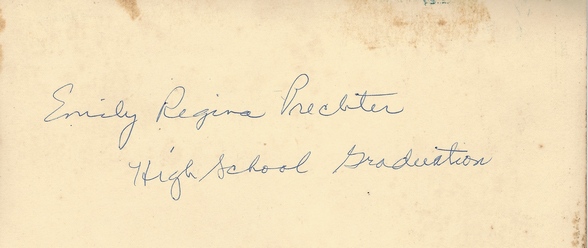 Emily Regina Prechter
High School Graduation